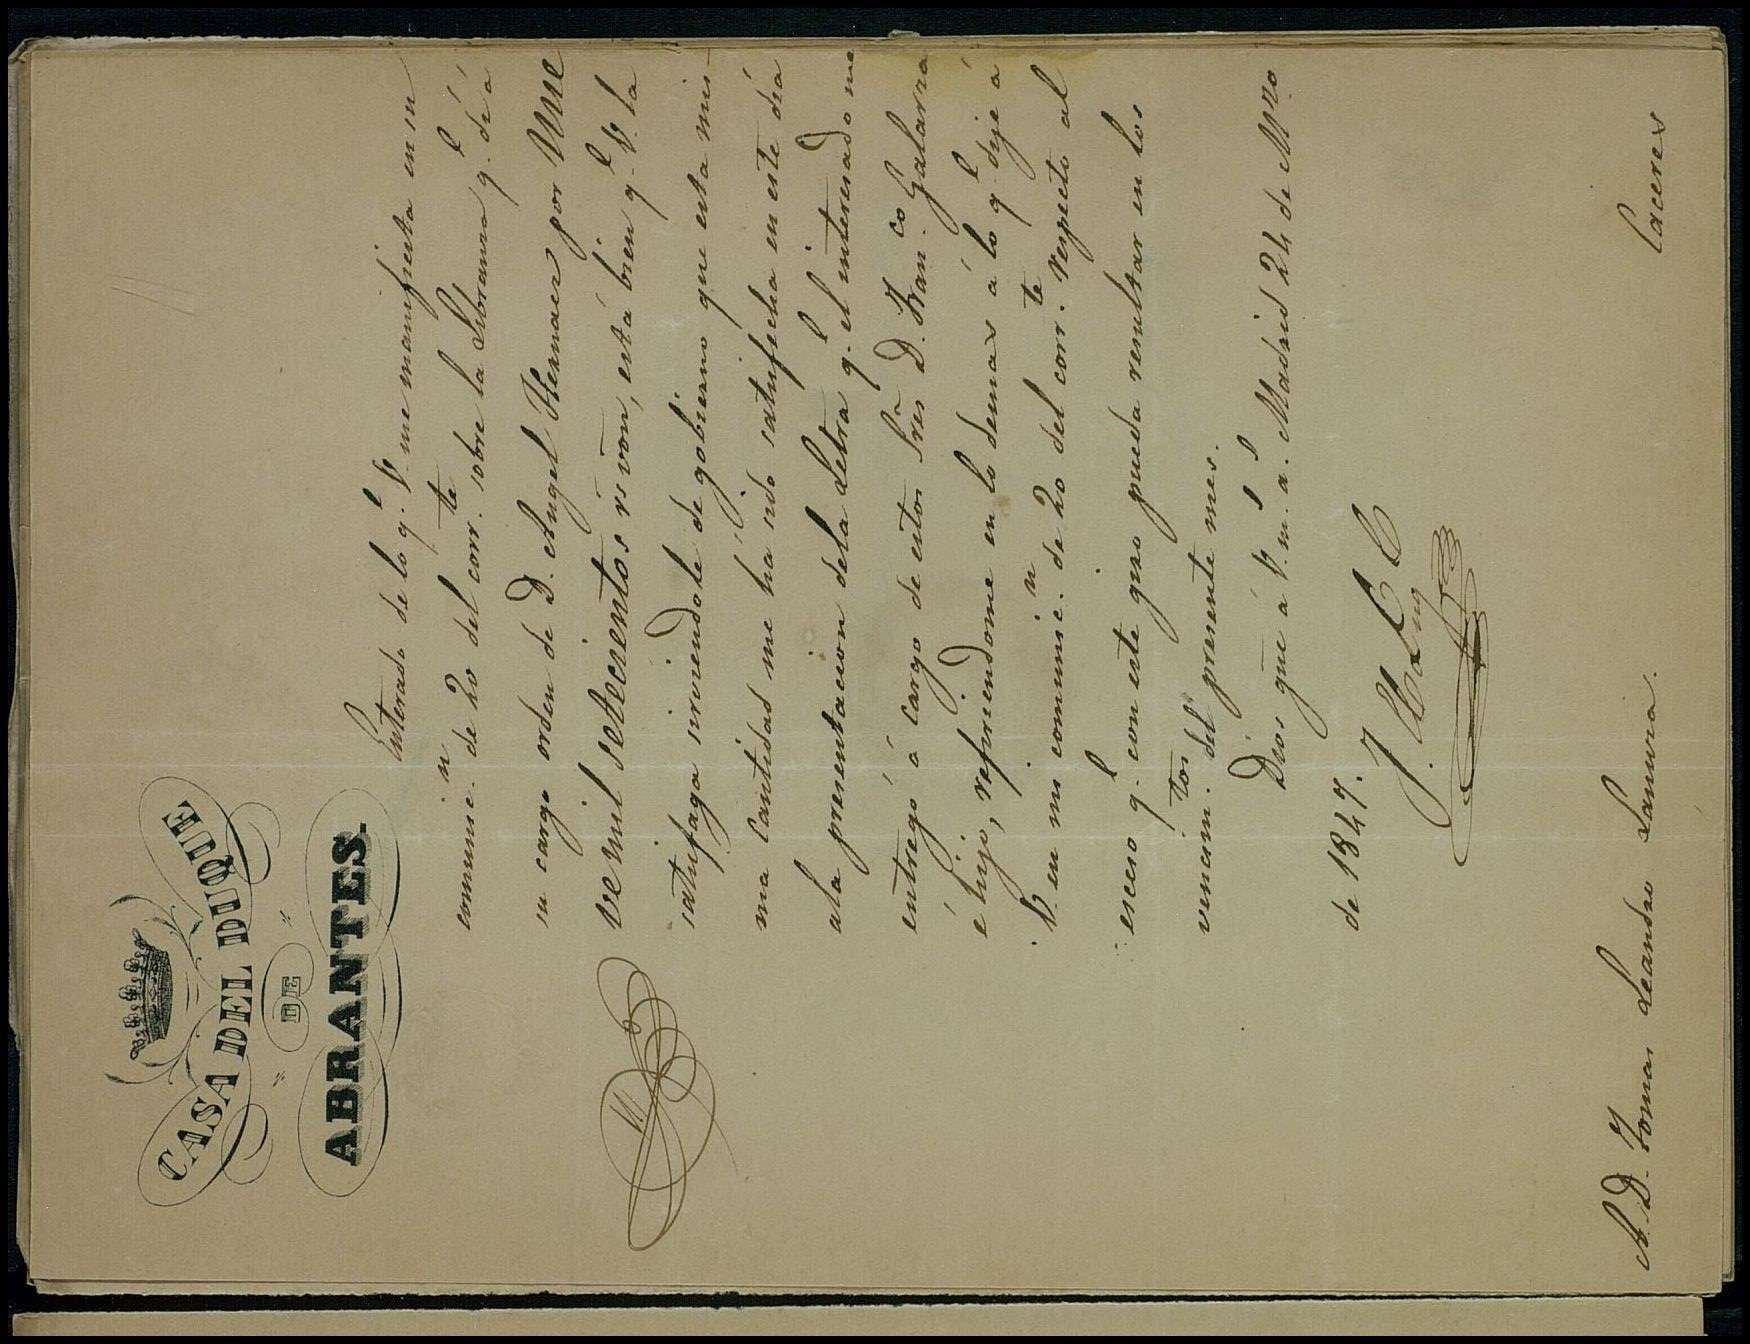 CASA DEL DUQUE
DE
ABRANTES.
Enterado de lo q.e V. me manifiesta en su
comunic.n de 20 del corr.te sobre la Libranza q.e dá á
su cargo orden de D. Angel Hernaez por Nue
ve mil setecientos rs von, está bien q.e V. la
satisfaga sirviendole de gobierno que esta mis-
ma Cantidad me há sido satisfecha en este dia
ala presentacion dela Letra q.e el interesado me
entregó á cargo de estos Sres D. Fran.co Galarza
é hijo, refiriendome en lo demas á lo q.e dije á
V. en mi comunic.n de 20 del corr.te respecto al
esceso q.e con este giro pueda resultar en los
vencim.tos del presente mes.
Dios gue á V. m.s a.s Madrid 24 de Mzo
de 1847.
A. D. Tomas Leandro Lamura. Caceres